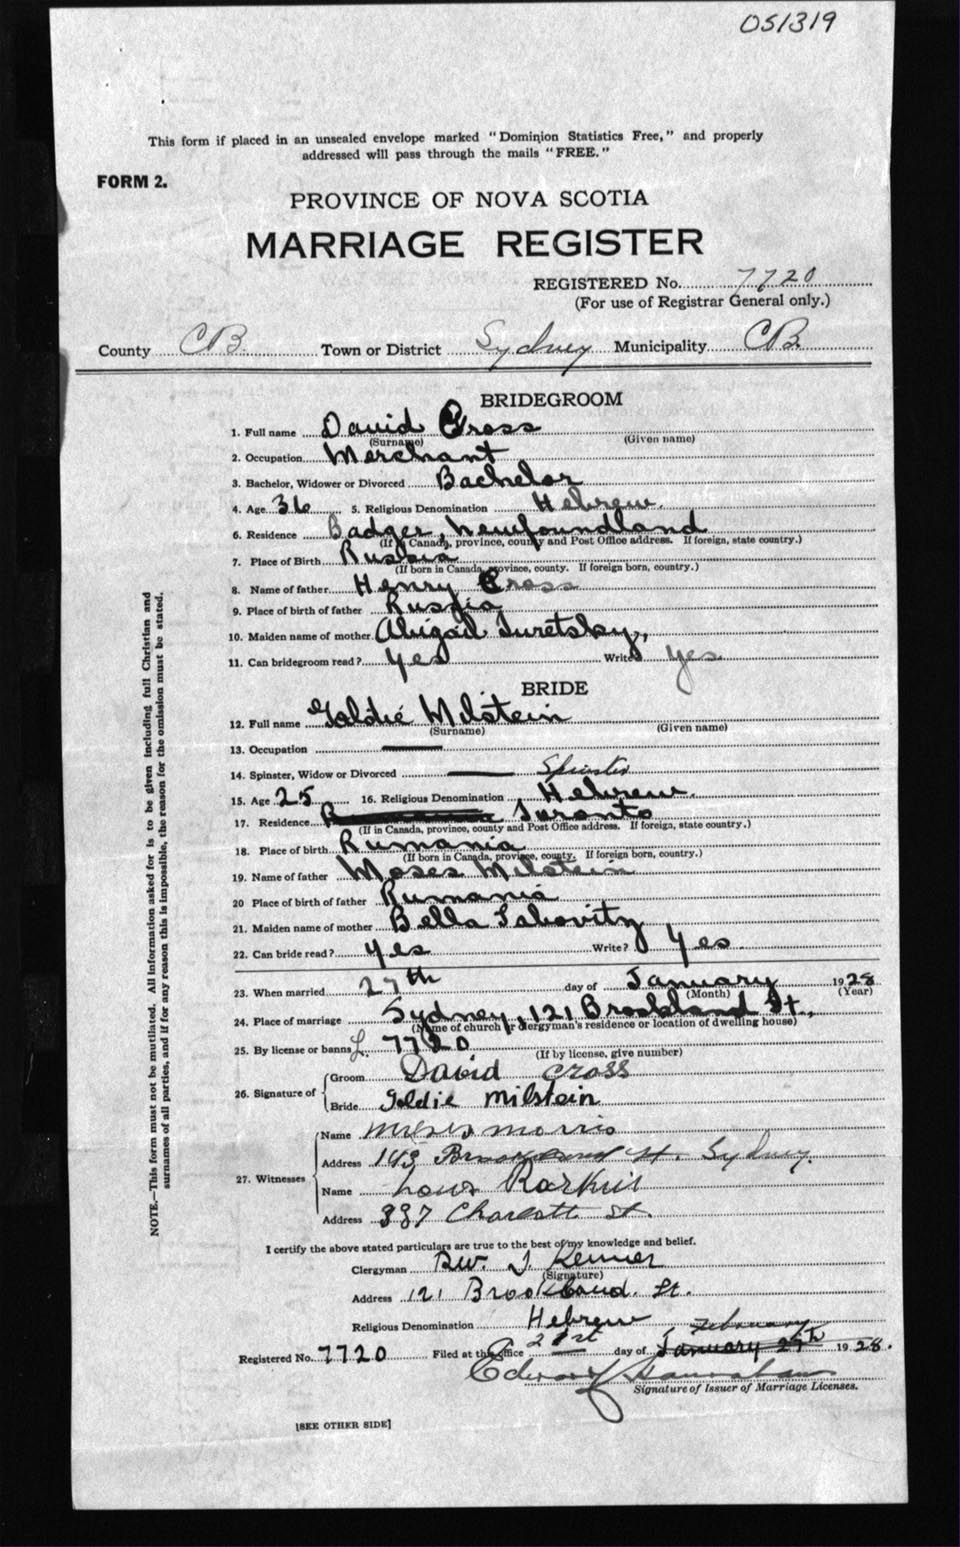 051319
This form if placed in an unsealed envelope marked "Dominion Statistics Free," and properly
addressed will pass through the mails "FREE."
FORM 2.
PROVINCE OF NOVA SCOTIA
MARRIAGE REGISTER
REGISTERED No. 7720
(For use of Registrar General only.)
County CB. Town or District Sydney Municipality CB
BRIDEGROOM
1. Full name David Cross
(Surname) (Given name)
2. Occupation Merchant
3. Bachelor, Widower or Divorced Bachelor
4. Age 36 5. Religious Denomination Hebrew.
6. Residence Badger, Newfoundland
(If in Canada, province, county and Post Office address. If foreign, state country.)
7. Place of Birth Russia
(If born in Canada, province, county. If foreign born, country.)
8. Name of father Henry Cross
9. Place of birth of father Russia
10. Maiden name of mother Abigail Turetsky,
11. Can bridegroom read? Yes Write? Yes.
BRIDE
12. Full name Goldie Milstein
(Surname) (Given name)
13. Occupation —
14. Spinster, Widow or Divorced — Spinster
15. Age 25 16. Religious Denomination Hebrew.
17. Residence Toronto
(If in Canada, province, county and Post Office address. If foreign, state country.)
18. Place of birth Rumania
(If born in Canada, province, county. If foreign born, country.)
19. Name of father Moses Milstein
20 Place of birth of father Rumania
21. Maiden name of mother Bella
22. Can bride read? Yes Write? Yes
23. When married 27th day of January 1928
(Month) (Year)
24. Place of marriage Sydney, 121 Brookland St.,
(Name of church or clergyman's residence or location of dwelling house)
25. By license or banns L. 7720
(If by license, give number)
26. Signature of
Groom David Cross
Bride Goldie Milstein
27. Witnesses
Name Morris
Address 143 Brookland St. Sydney.
Name Louis
Address 337 Charlotte St.
I certify the above stated particulars are true to the best of my knowledge and belief.
Clergyman Rev. I.
(Signature)
Address 121 Brookland. St.
Religious Denomination Hebrew
February
Registered No. 7720 Filed at the office 21st day of January 27th 1928.
Edward
Signature of Issuer of Marriage Licenses.
[SEE OTHER SIDE]
NOTE.—This form must not be mutilated. All information asked for is to be given including full Christian and
surnames of all parties, and if for any reason this is impossible, the reason for the omission must be stated.